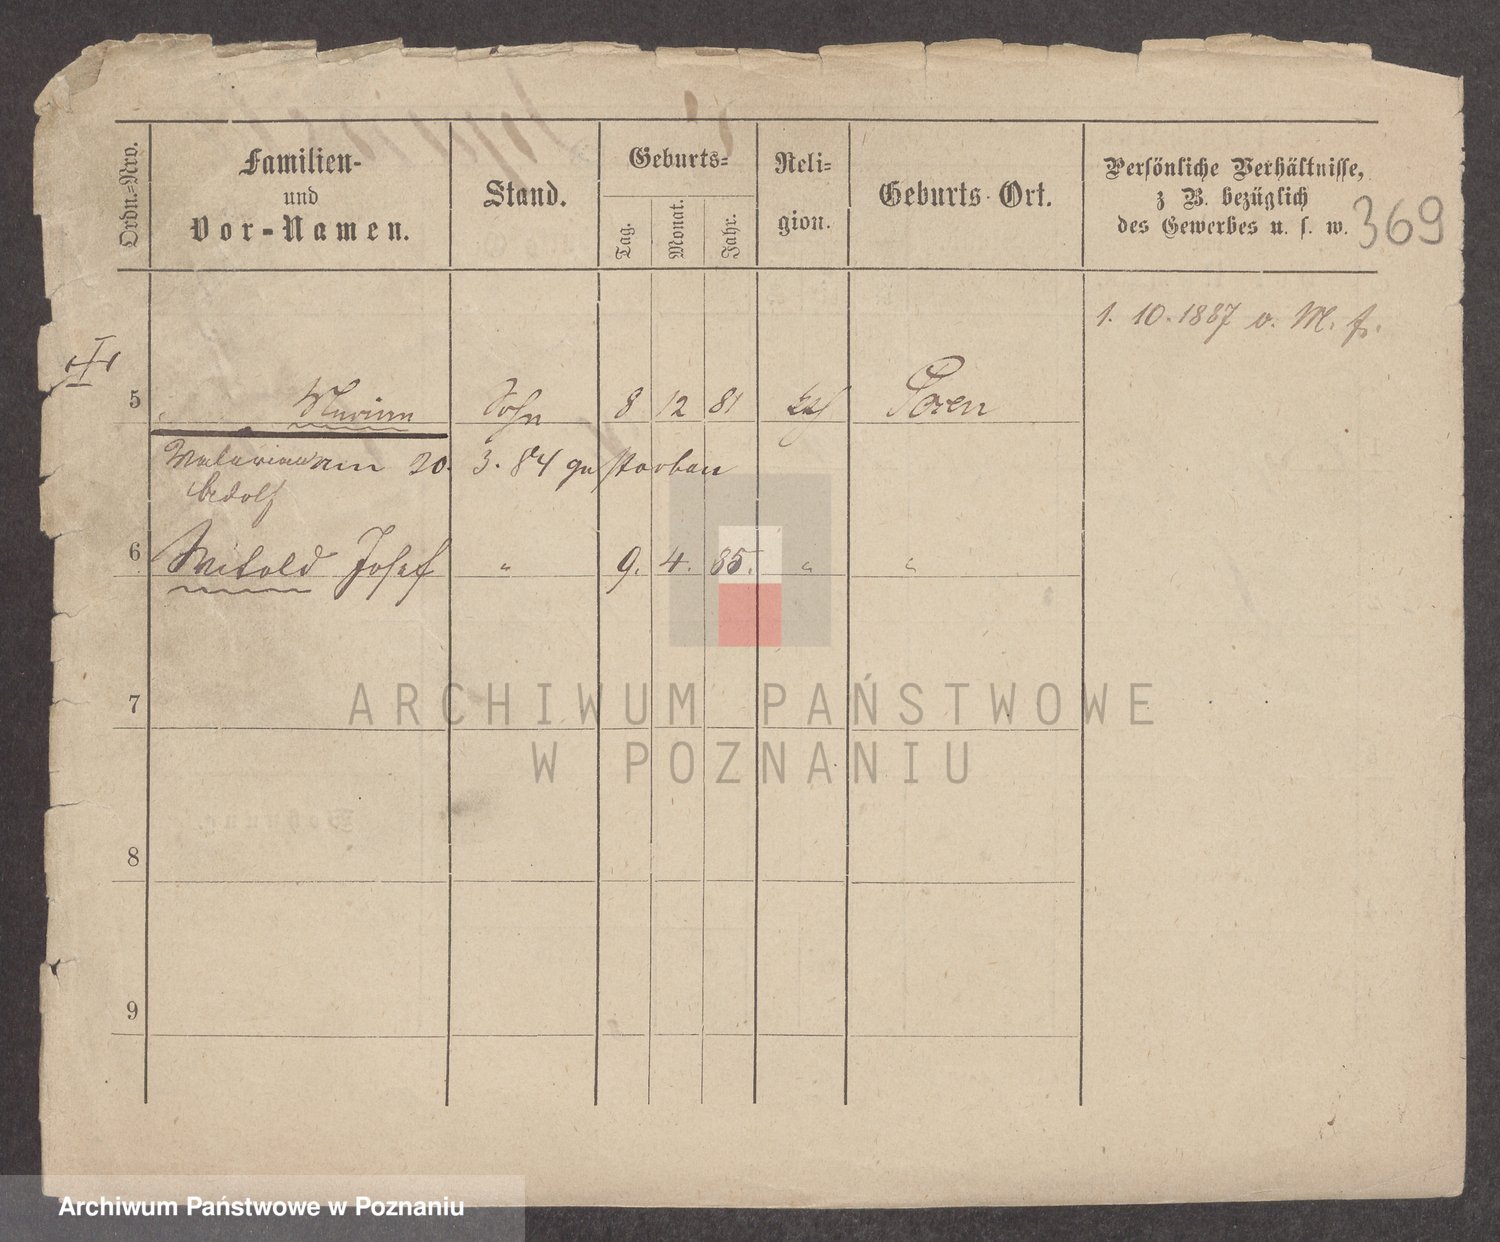 Ordn.=Nro.
Familien-
und
Vor-Namen.
Stand.
Geburts=
Tag.
Monat.
Jahr.
Reli-
gion.
Geburts-Ort.
Persönliche Verhältnisse,
z B. bezüglich
des Gewerbes u. s. w.
369
1. 10. 1887 v. M. fr.
5 Marian Sohn 8 12 81 kath Posen
am 20. 3. 84 gestorben
Adolf
6 Witold Josef " 9. 4. 85. " "
7
8
9
ARCHIWUM PAŃSTWOWE
W POZNANIU
Archiwum Państwowe w Poznaniu